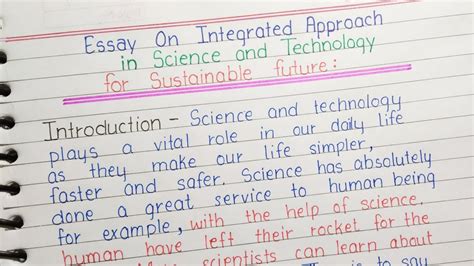 Essay On Integrated Approach
in Science and Technology
for Sustainable future:
Introduction - Science and technology
plays a vital role in our daily life
as they make our life simpler,
faster and safer. Science has absolutely
done a great service to human being
for example, with the help of science,
human have left their rocket for the
scientists can learn about
is to say